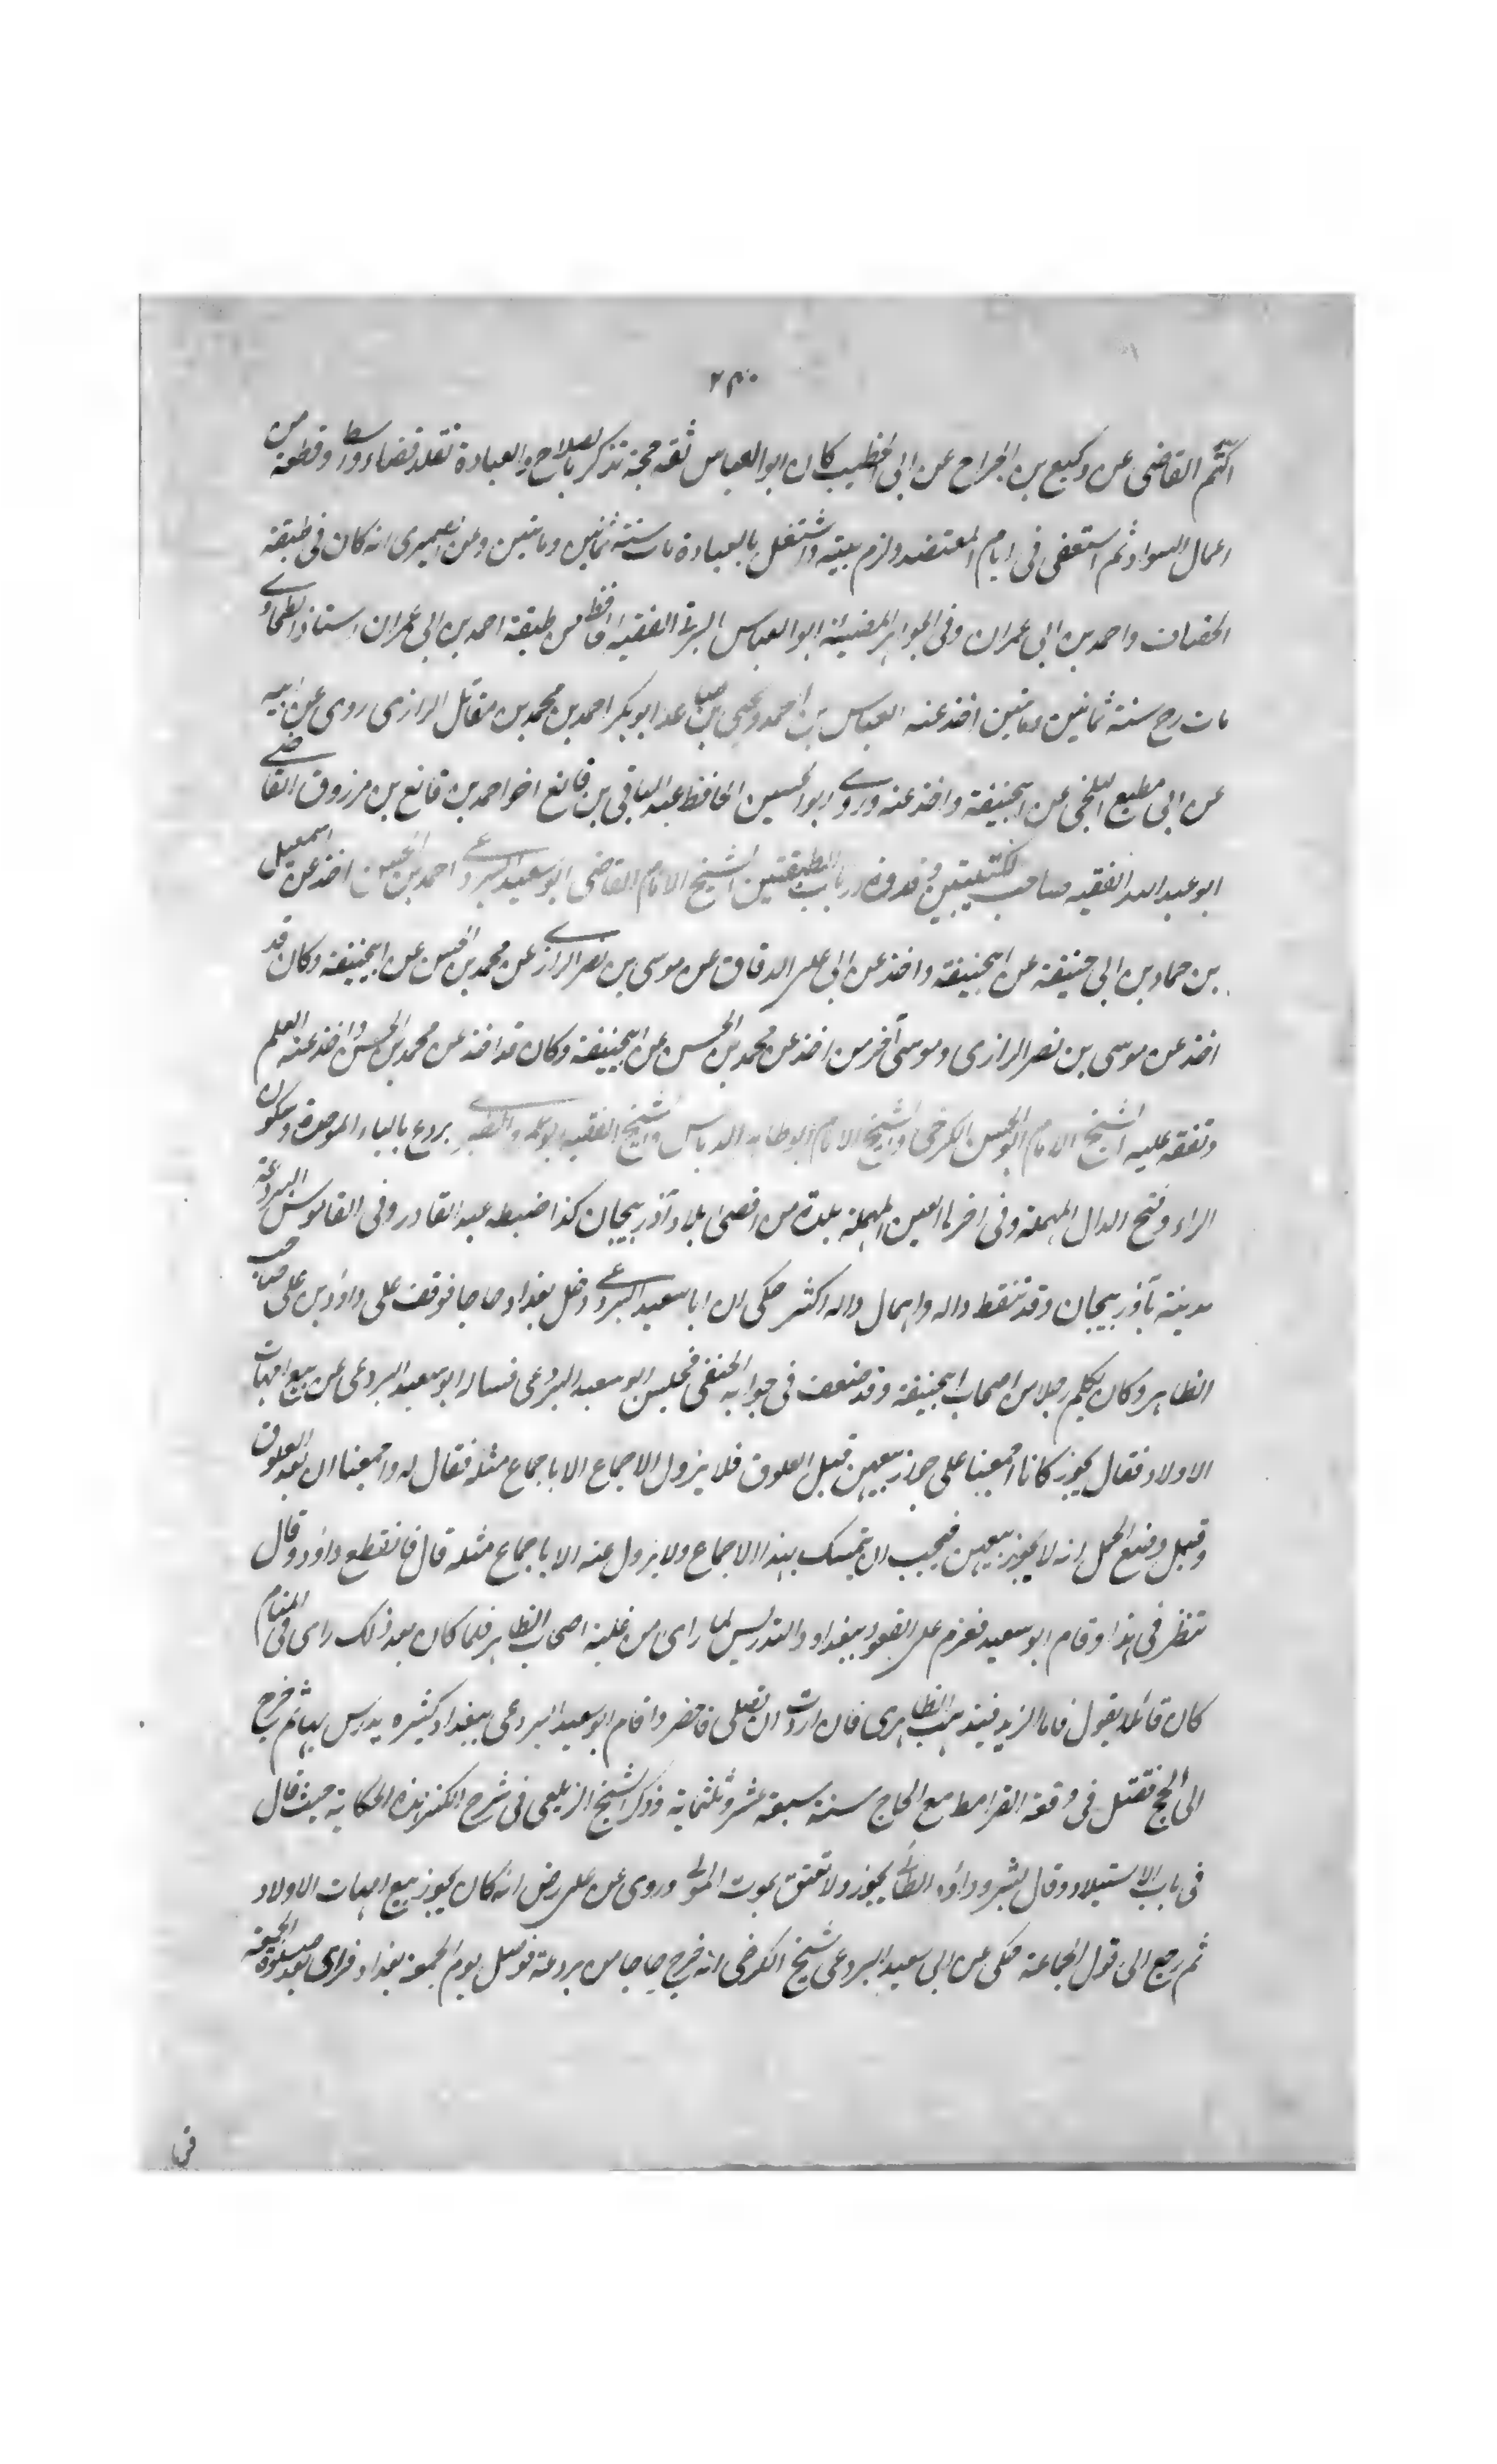 ٢٣٠
اكثم القاضى عن وكيع بن الجراح عن ابى الخطيب كان ابو العباس ثقة حجة تذكر بالصلاح والعبادة تقلد قضاء واسط وقطعة من
اعمال السواد ثم استعفى فى ايام المعتضد ولزم بيته واشتغل بالعبادة مات سنة ثمانين ومايتين وعن الصميرى انه كان فى طبقة
الخصاف واحمد بن ابى عمران وفى الجواهر المضيئة ابو العباس البرتى الفقيه الحافظ من طبقة احمد بن ابى عمران استاذ الطحاوى
مات رح سنة ثمانين ومايتين اخذ عنه العباس بن احمد ويحيى بن صاعد ابو بكر احمد بن محمد بن مقاتل الرازى روى عن ابيه
عن ابى مطيع البلخى عن ابيحنيفة واخذ عنه وروى ابو الحسين الحافظ عبد الباقى بن قانع اخو احمد بن قانع بن مرزوق القاضى
ابو عبد الله الفقيه صاحب الشيخ الامام القاضى ابو سعيد البردعى احمد بن الحسين اخذ عن اسمعيل
بن حماد بن ابى حنيفة عن ابيحنيفة واخذ عن ابى على الدقاق عن موسى بن نصر الرازى عن محمد بن الحسن عن ابيحنيفة وكان قد
اخذ عن موسى بن نصر الرازى وموسى آخر من اخذ عن محمد بن الحسن عن ابيحنيفة وكان قد اخذ عن محمد بن الحسن واخذ عنه العلم
وتفقه عليه الشيخ الامام ابو الحسن الكرخى والشيخ الامام ابو طاهر الدباس والشيخ الفقيه ابو عمرو الطبرى بردع بالباء الموحدة وسكون
الراء وفتح الدال المهملة وفى اخرها العين المهملة بلدة من اقصى بلاد آذربيجان كذا ضبطه عبد القادر وفى القاموس البردعة
مدينة بآذربيجان وقد تنقط داله واهمال داله اكثر حكى ان ابا سعيد البردعى دخل بغداد حاجا فوقف على داود بن على صاحب
الظاهر وكان يكلم رجلا من اصحاب ابيحنيفة وقد ضعف فى جوابه الحنفى فجلس ابو سعيد البردعى فساله ابو سعيد البردعى عن بيع امهات
الاولاد فقال يجوز كانا اجمعنا على جواز بيعهن قبل العلوق فلا يزول الاجماع الا باجماع مثله فقال له واجمعنا ان بعد العلوق
وقبل وضع الحمل انه لا يجوز بيعهن فيجب ان يتمسك بهذا الاجماع ولا يزول عنه الا باجماع مثله قال فانقطع داود وقال
ننظر فى هذا وقام ابو سعيد فعزم على القعود ببغداد والتدريس لما راى من غلبة اصحاب الظاهر فلما كان بعد ذلك راى فى المنام
كان قائلا يقول فاما الزبد فيذهب الظاهرى فان اردت ان تصلى فاحضر واقام ابو سعيد البردعى ببغداد كثيره يدرس بها ثم خرج
الى الحج فقتل فى وقعة القرامط مع الحاج سنة سبعة عشر وثلثماية وذكر الشيخ الزيلعى فى شرح الكنز هذه الحكاية حيث قال
فى باب الاستيلاد وقال بشر وداود الطائى يجوز ولا تعتق بموت المولى وروى عن على رض انه كان يجوز بيع امهات الاولاد
ثم رجع الى قول الجماعة حكى عن ابى سعيد البردعى شيخ الكرخى انه خرج حاجا من بردعة فوصل يوم الجمعة بغداد فراى بعد صلوة الجمعة
فى